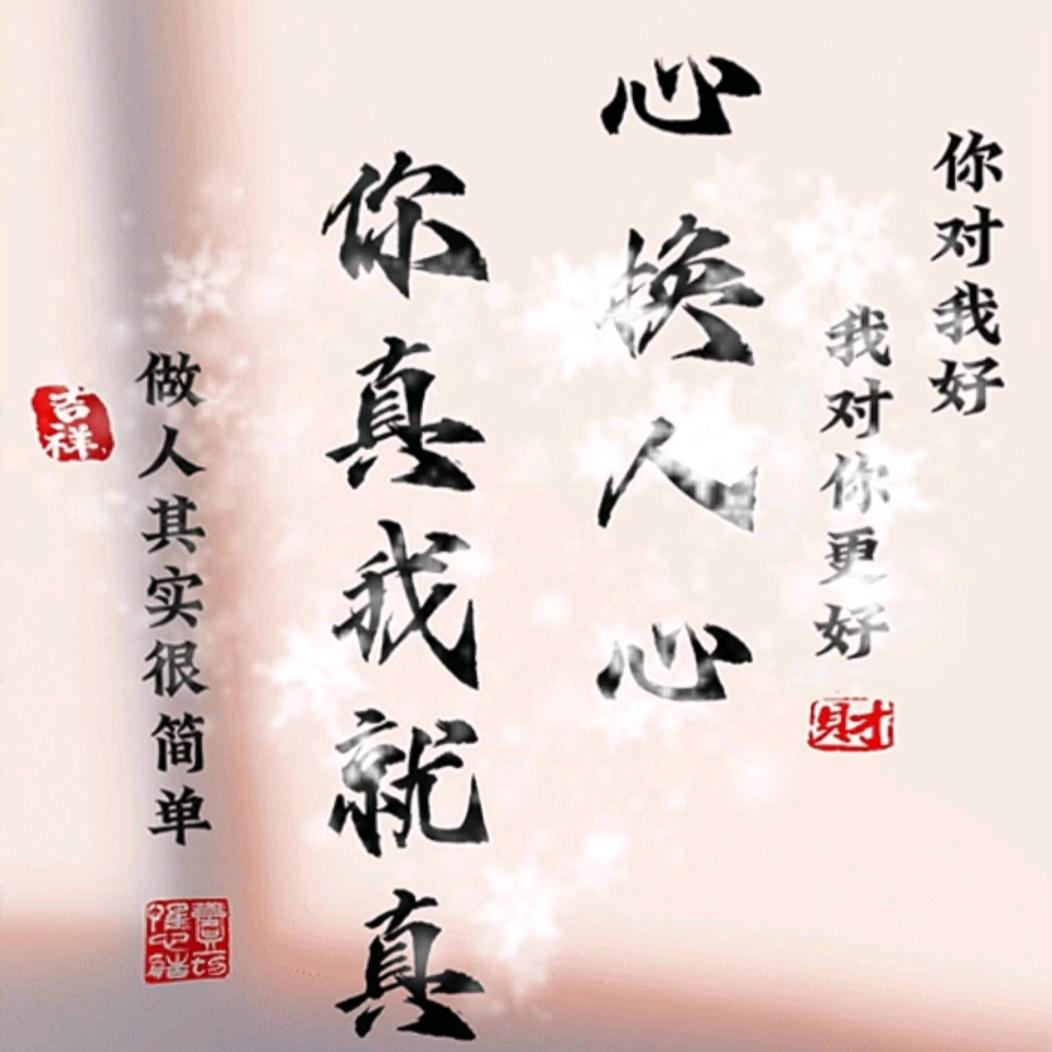 你对我好
我对你更好
财
心换人心
你真我就真
做人其实很简单
吉祥